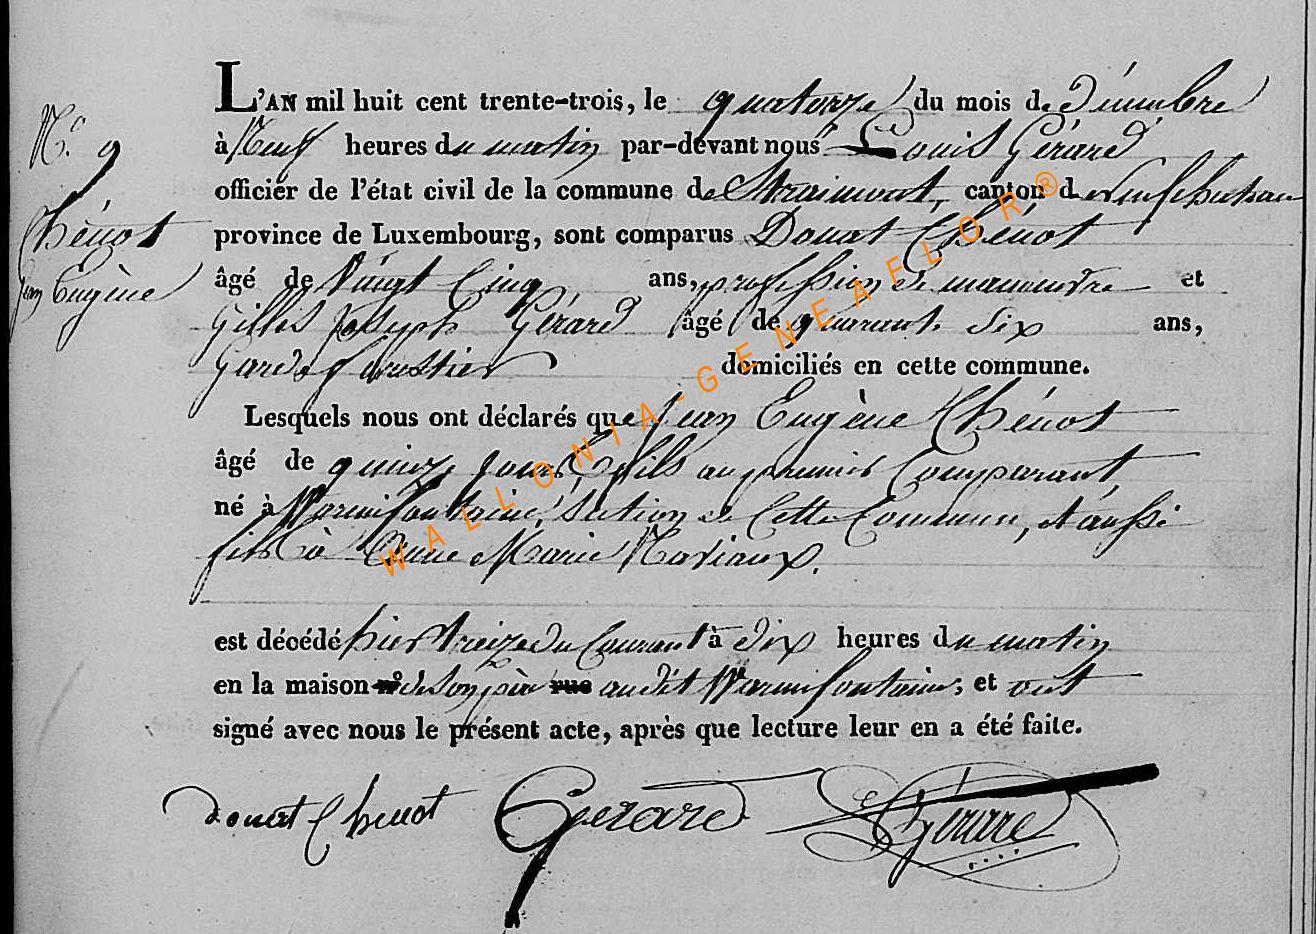 N.o 9
Chénot
Jean Eugène
L'AN mil huit cent trente-trois, le quatorze du mois de décembre
à Neuf heures du matin par-devant nous Louis Gérard
officier de l'état civil de la commune de Straimont, canton de neufchateau
province de Luxembourg, sont comparus Donat Chénot
âgé de Vingt Cinq ans, profession de manoeuvre et
Gilles Joseph Gérard âgé de quarante six ans,
Garde forestier domiciliés en cette commune.
Lesquels nous ont déclarés que Jean Eugène Chénot
âgé de quinze jours, fils au premier Comparant
né à Warmifontaine, section de Cette Commune, et aussi
fils à Anne Marie Naviaux.
est décédé hier treize du Courant à dix heures du matin
en la maison n° de son père rue audit Warmifontaine, et ont
signé avec nous le présent acte, après que lecture leur en a été faite.
donat Chenot Gerard L Gérard
WALLONIA-GENEAFLOR®